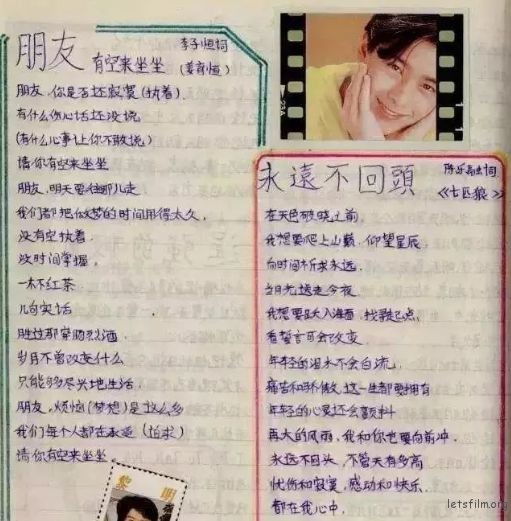 朋友
李子恒词
有空来坐坐
(姜育恒)
朋友，你是否还寂寞(执着)
有什么伤心话还没说
(有什么心事让你不敢说)
请你有空来坐坐
朋友，明天要往哪儿走
我们都把做梦的时间用得太久，
没有空执着，
没时间掌握，
一杯红茶
几句实话
胜过那穿肠烈酒，
岁月不曾改变什么
只能够尽兴地生活，
朋友，烦恼(梦想)是这么多
我们每个人都在承受(追求)
请你有空来坐坐。
黎 明
永遠不回頭
陈乐融词
《七匹狼》
在天色破晓之前，
我想要爬上山巅，仰望星辰
向时间祈求永远，
当月光送走今夜
我想要跃入海面，找寻起点，
看誓言可会改变
年轻的泪水不会白流，
痛苦和骄傲，这一生都要拥有
年轻的心灵还会颤抖
再大的风雨，我和你也要向前冲，
永远不回头，不管天有多高
忧伤和寂寞，感动和快乐，
都在我心中，
letsfilm.org